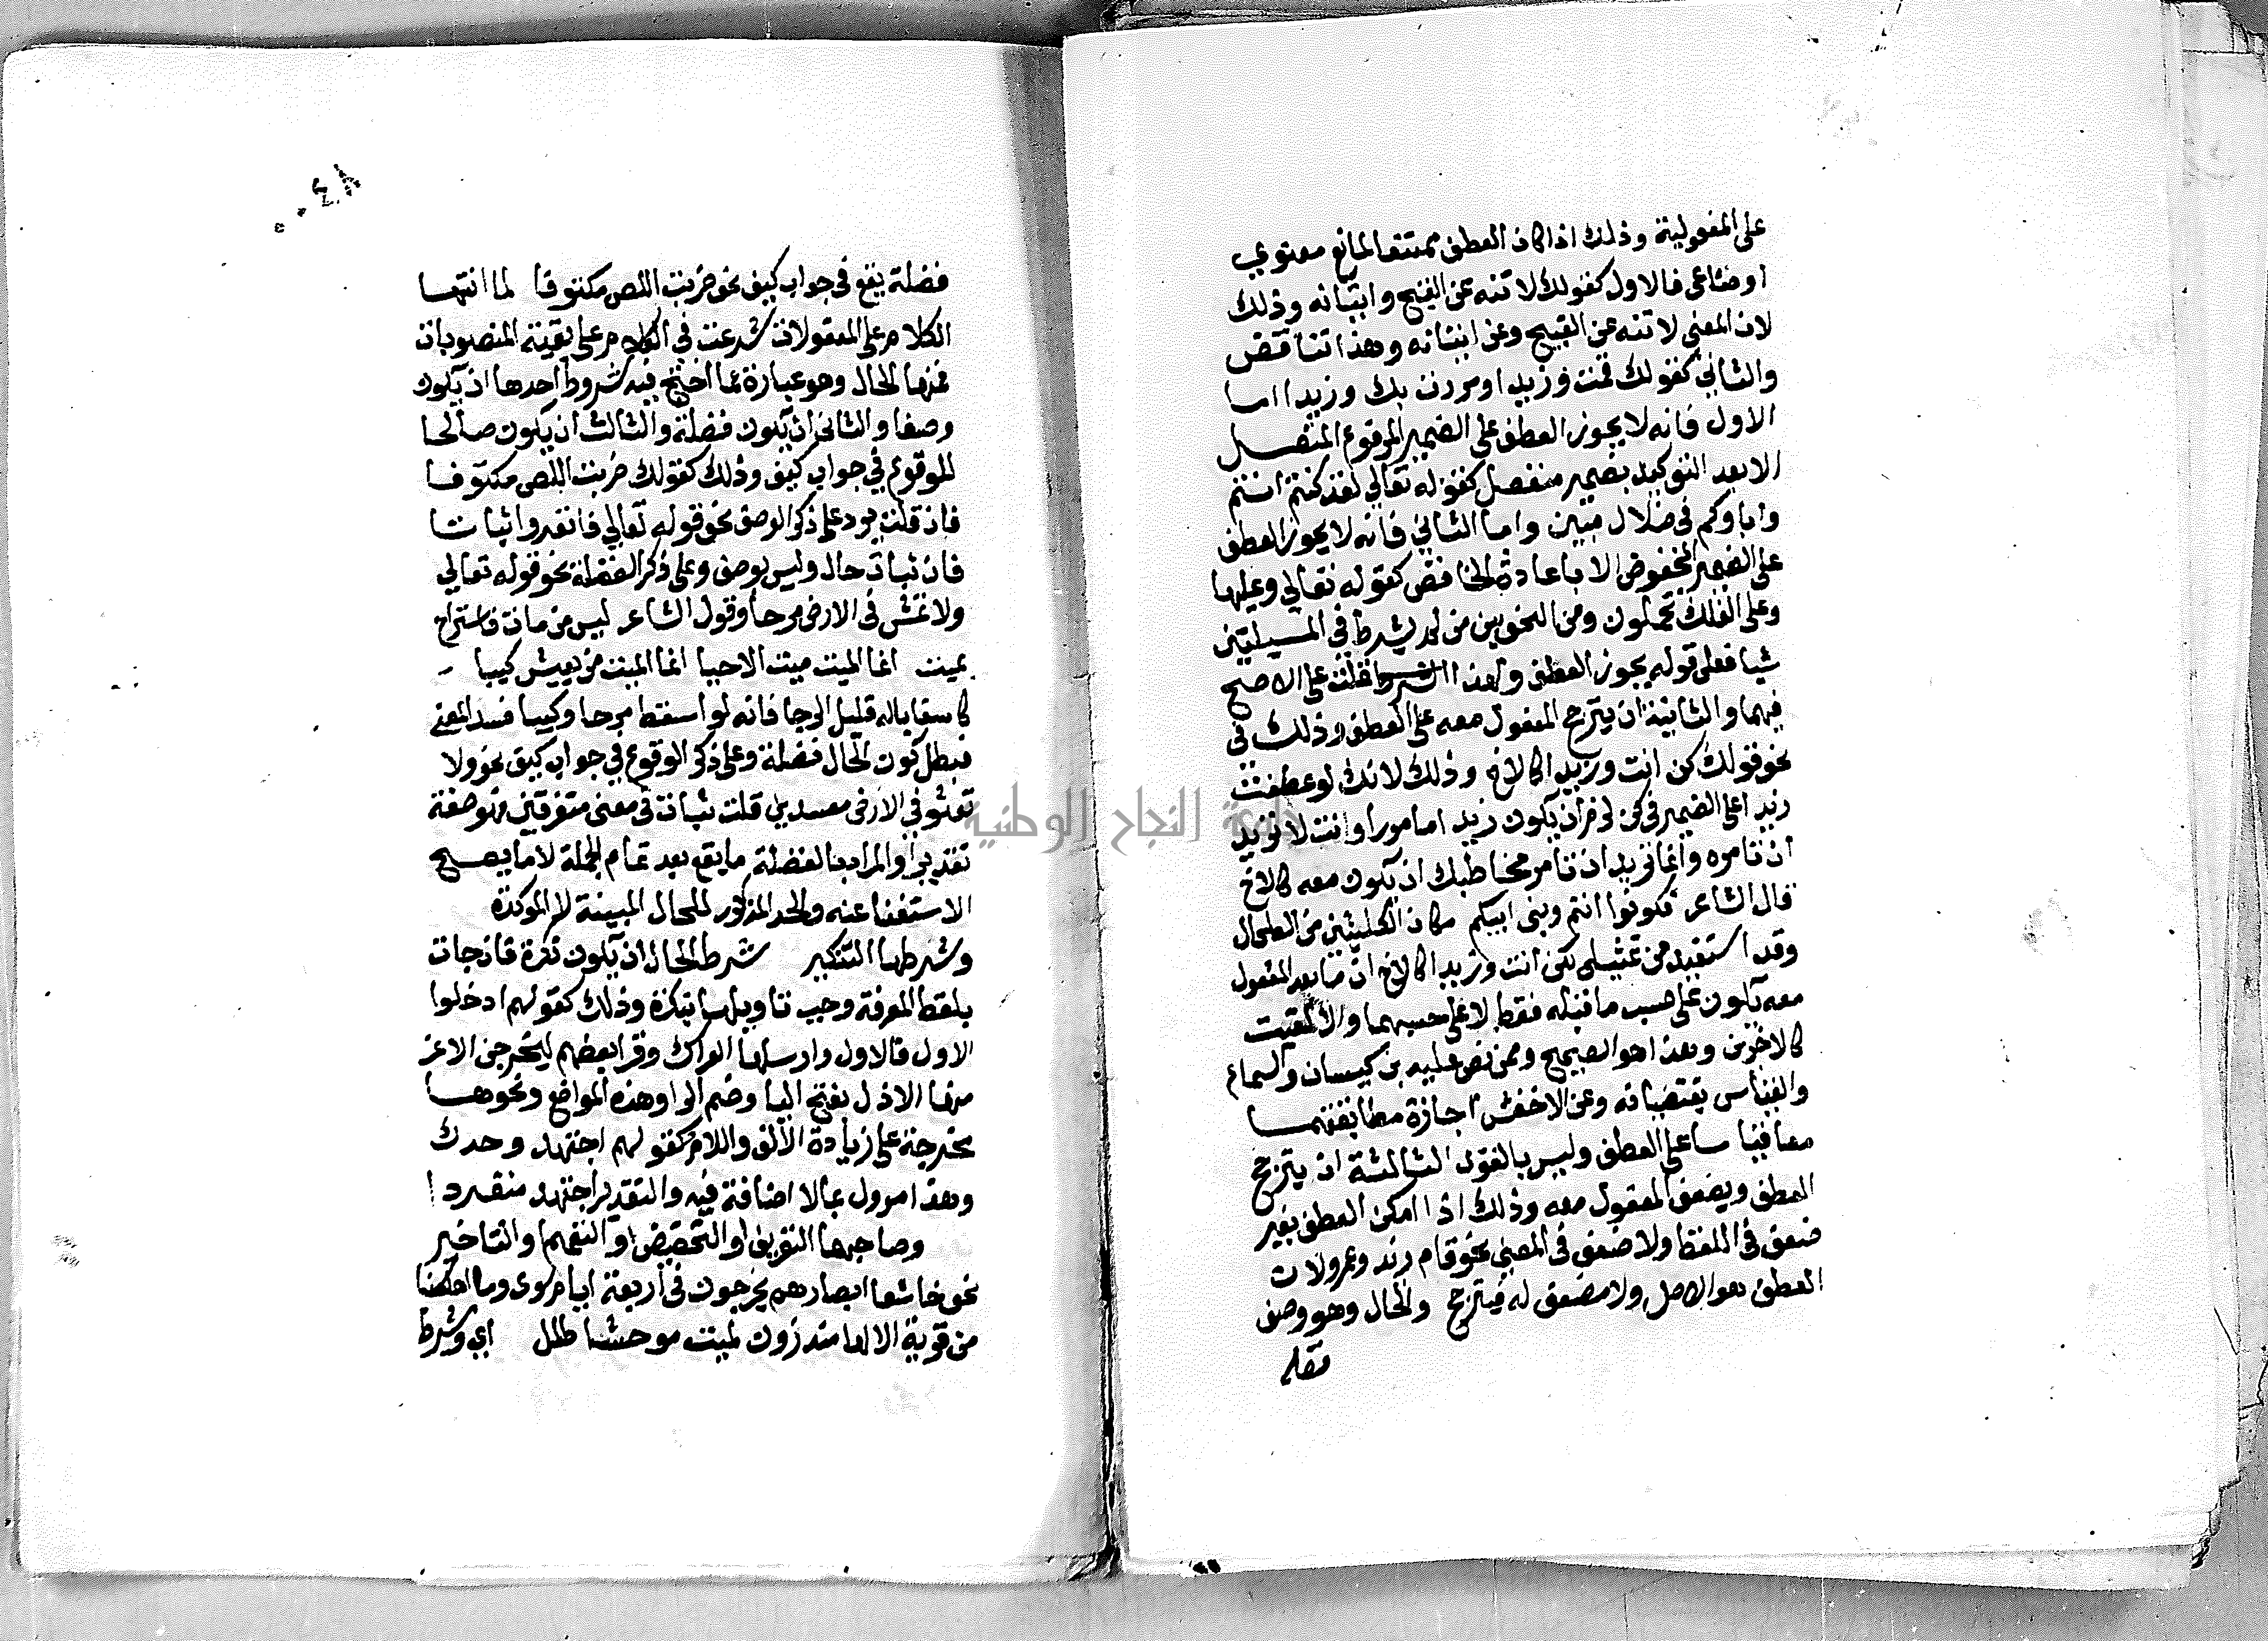 على المفعولية وذلك اذا كان العطف ممتنعا لمانع معنوي
او صناعى فالاول كقولك لا تنه عن القبيح وايتانه وذلك
لان المعنى لا تنه عن القبيح وعن اتيانه وهذا تناقض
والثاني كقولك قمت وزيدا ومررت بك وزيدا اما
الاول فانه لا يجوز العطف على الضمير المرفوع المتصل
الا بعد التوكيد بضمير منفصل كقوله تعالي لقد كنتم انتم
واباوكم في ضلال مبين واما الثاني فانه لا يجوز العطف
على الضمير المخفوض الا باعادة الخافض كقوله تعالي وعليها
وعلى الفلك تحملون ومن النحويين من لم يشرط في المسيلتين
شيا فعلى قوله يجوز العطف ولهذا قلت على الاصح
فيهما والثانية ان يترجح المفعول معه على العطف وذلك في
نحو قولك كن انت وزيدا كالاخ وذلك لانك لو عطفت
زيدا على الضمير في كن لزم ان يكون زيد مامورا وانت لا تريد
ان تامره وانما تريد ان تامر مخاطبك ان يكون معه كالاخ
قال الشاعر فكونوا انتم وبني ابيكم مكان الكليتين من الطحال
وقد استفيد من تمثيلي بكن انت وزيدا كالاخ ان ما بعد المفعول
معه يكون على حسب ما قبله فقط لا على حسبهما والا لقيت
كالاخوين وهذا هو الصحيح وممن نص عليه بن كيسان والسماع
والقياس يقتضيانه وعن الاخفش اجازة مطابقتهما
معا قياسا على العطف وليس بالقوي الثالثة ان يترجح
العطف ويضعف المفعول معه وذلك اذا امكن العطف بغير
ضعف في اللفظ ولا ضعف في المعنى نحو قام زيد وعمرو لان
العطف هو الاصل ولا مضعف له فيترجح والحال وهو وصف
فضله
فضلة يقع في جواب كيف نحو ضربت اللص مكتوفا لما انتهى
الكلام على المفعولات شرعت في الكلام على بقية المنصوبات
فمنها الحال وهو عبارة عما اجتمع فيه شروط احدها ان يكون
وصفا والثاني ان يكون فضلة والثالث ان يكون صالحا
للوقوع في جواب كيف وذلك كقولك ضربت اللص مكتوفا
فان قلت يرد على ذكر الوصف نحو قوله تعالي فانفروا ثباتا
فان ثبات حال وليس بوصف وعلى ذكر الفضلة نحو قوله تعالي
ولا تمش في الارض مرحا وقول الشاعر ليس من مات فاستراح
بميت انما الميت ميت الاحيا انما الميت من يعيش كيبا
كاسفا باله قليل الرجا فانه لو اسقط مرحا وكيبا فسد المعنى
فبطل كون الحال فضلة وعلى ذكر الوقوع في جواب كيف نحو ولا
تعثو في الارض مفسدين قلت ثبات في معنى متفرقين فهو صفة
تقديرا والمراد بالفضلة ما يقع بعد تمام الجملة لا ما يصح
الاستغنا عنه والحد المذكور للحال المبينة لا الموكدة
وشرطها التنكير شرط الحال ان يكون نكرة فان جات
بلفظ المعرفة وجب تاويلها بنكرة وذلك كقولهم ادخلوا
الاول فالاول وارسلها العراك وقرا بعضهم ليخرجن الاعز
منها الاذل بفتح اليا وضم الرا وهذه المواضع ونحوها
مخرجة على زيادة الالف واللام كقولهم اجتهد وحدك
وهذا موول بما لا اضافة فيه والتقدير اجتهد منفردا
وصاحبها التعريف او التخصيص او التعميم او التاخير
نحو خاشعا ابصارهم يخرجون في اربعة ايام سوى وما اهلكنا
من قرية الا لها منذرون لمية موحشا طلل اي وشرط
جامعة النجاح الوطنية